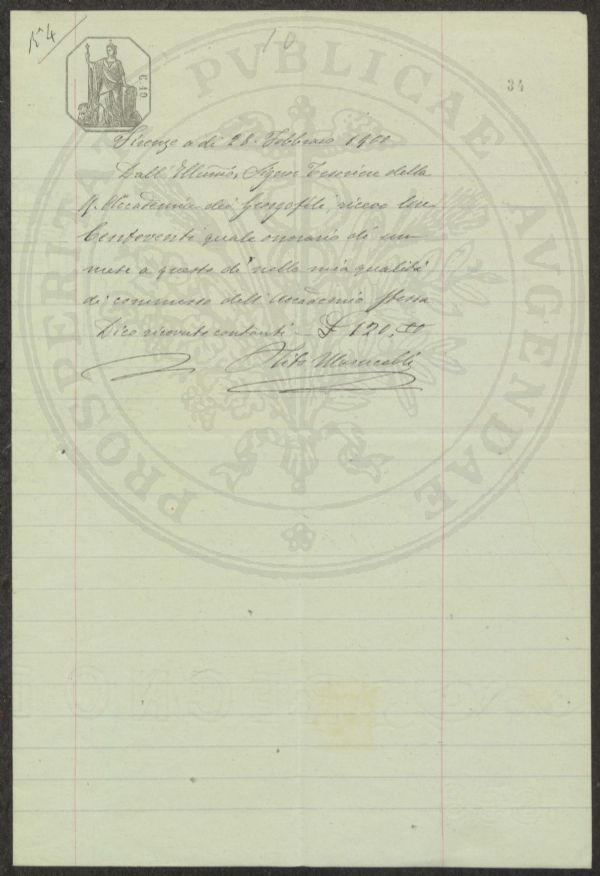 N° 4
10
34
C. 10
PROSPERITATI PVBLICAE AVGENDAE
Firenze a dì 28. Febbraio 1900
Dall' Illmo, Signor Tesoriere della
R. Accademia dei Georgofili, ricevo Lire
Centoventi quale onorario di un
mese a questo dì nella mia qualità
di commesso dell' Accademia stessa
Dico ricevute contanti - £ 120,00
Tito